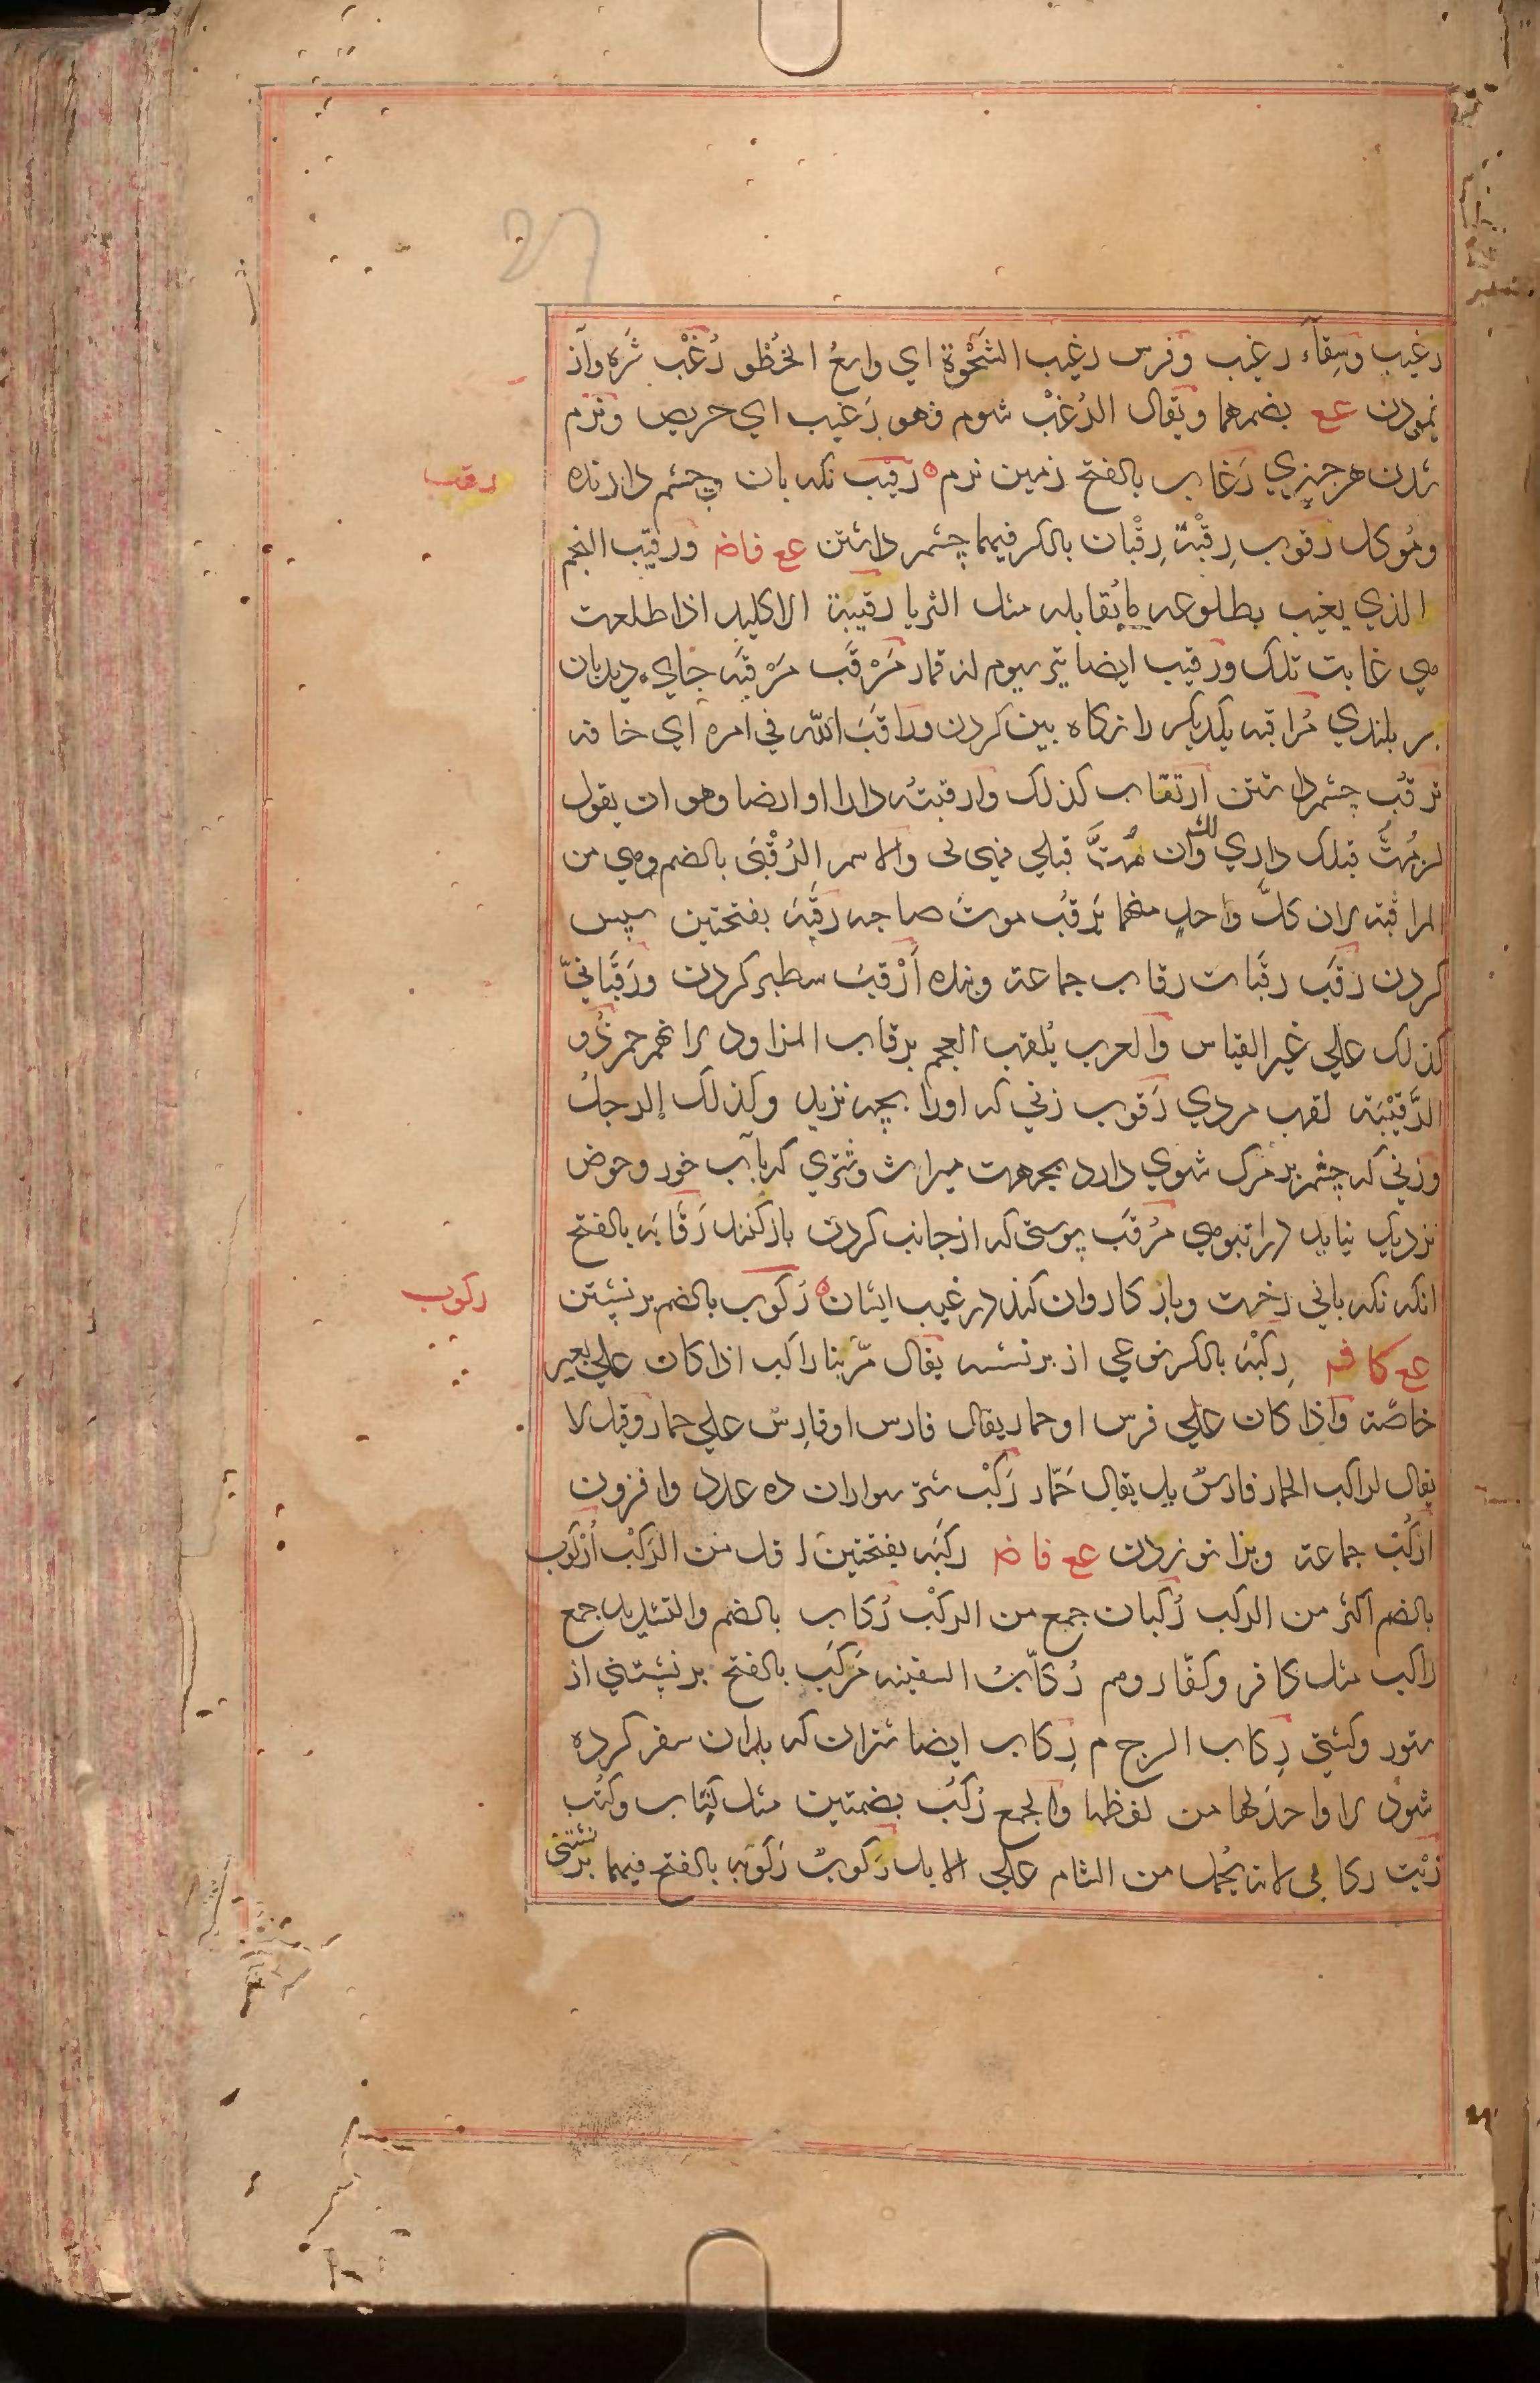 رغيب وسِقآء رغيب وفرس رغيب الشَحْوَة اي واسعُ الخُطو رُغْب شَره وآز
نمودن عع بضمهما ويقال الرُغبُ شوم فهو رَغيب اي حريص ونرم
شدن هر چيزي رَغاب بالفتح زمين نرم رَقيب نكه بان وچشم دارنده
رقب
وموكل رَقوب رِقْبَة رِقْبان بالكسر فيهما چشم داشتن عع فاض ورقيب النجم
الذي يغيب بطلوعه ما يُقابله مثل الثريا رقيبة الاكليل اذا طلعت
هي غابت تلك ورقيب ايضا تير سيوم از قمار مَرْقَب مَرْقَبه جاي ديدبان
بر بلندي مُراقبه يكديكر را نكاه بين كردن وراقبَ الله في امره اي خافه
ترقّب چشم داشتن ارتقاب كذلك وارقبتُه دارا او ارضا وهو ان يقول
ان مُتُّ قبلك داري لك وان مُتَّ قبلي فهي لى والاسم الرُقْبَى بالضم وهي من
المراقبة لان كلَّ واحدٍ منهما يَرقبُ موتَ صاحبه رقبَه بفتحتين سپس
كردن رَقَب رقَبات رقاب جماعة وبنده اَرْقَب سطبر كردن ورَقَبانيّ
كذلك علي غير القياس والعرب يُلقب العجم برقاب المزاود لانهم حمر ذُو
الرَقَيْبَة لقب مردي رَقوب زني كه اورا بچه نزيد وكذلك الرجلُ
وزني كه چشم بر مرك شوي دارد بجهت ميراث وشتري كه بآب خور وحوض
نزديك نيايد از انبوهي مُرقّب پوستى كه از جانب كردن باز كنند رَقّابَه بالفتح
انكه نكه باني رخت وبار كاروان كند در غيب ايشان رُكوب بالضم بر نشستن
ركوب
عع كا فه رِكْبَه بالكسر نوعي از بر نشستن يقال مَرَّ بنا راكب اذا كان علي بعير
خاصّة واذا كان علي فرس او حمار يقال فارس او فارسٌ علي حمار وقيل لا
يقال لراكب الحمار فارسٌ بل يقال حَمّار رَكْب شتر سواران ده عدد وافزون
اركُب جماعة وبزانو زدن عع فاض ركَبَه بفتحتين اقل من الرَكْب اُرْكوب
بالضم اكثر من الركب رُكبان جمع من الركْب رُكّاب بالضم والتشديد جمع
راكب مثل كافر وكفّار وهم رُكّابُ السفينه مَركَب بالفتح بر نشستني از
ستور وكشتي رِكاب السرج م رِكاب ايضا شتران كه بدان سفر كرده
شود لا واحدَ لها من لفظها والجمع رُكُب بضمتين مثل كِتاب وكُتُب
زَيْت ركابي لانه يُحمل من الشام علي الابل رَكوبُ رَكوبه بالفتح فيهما بر نشستنى